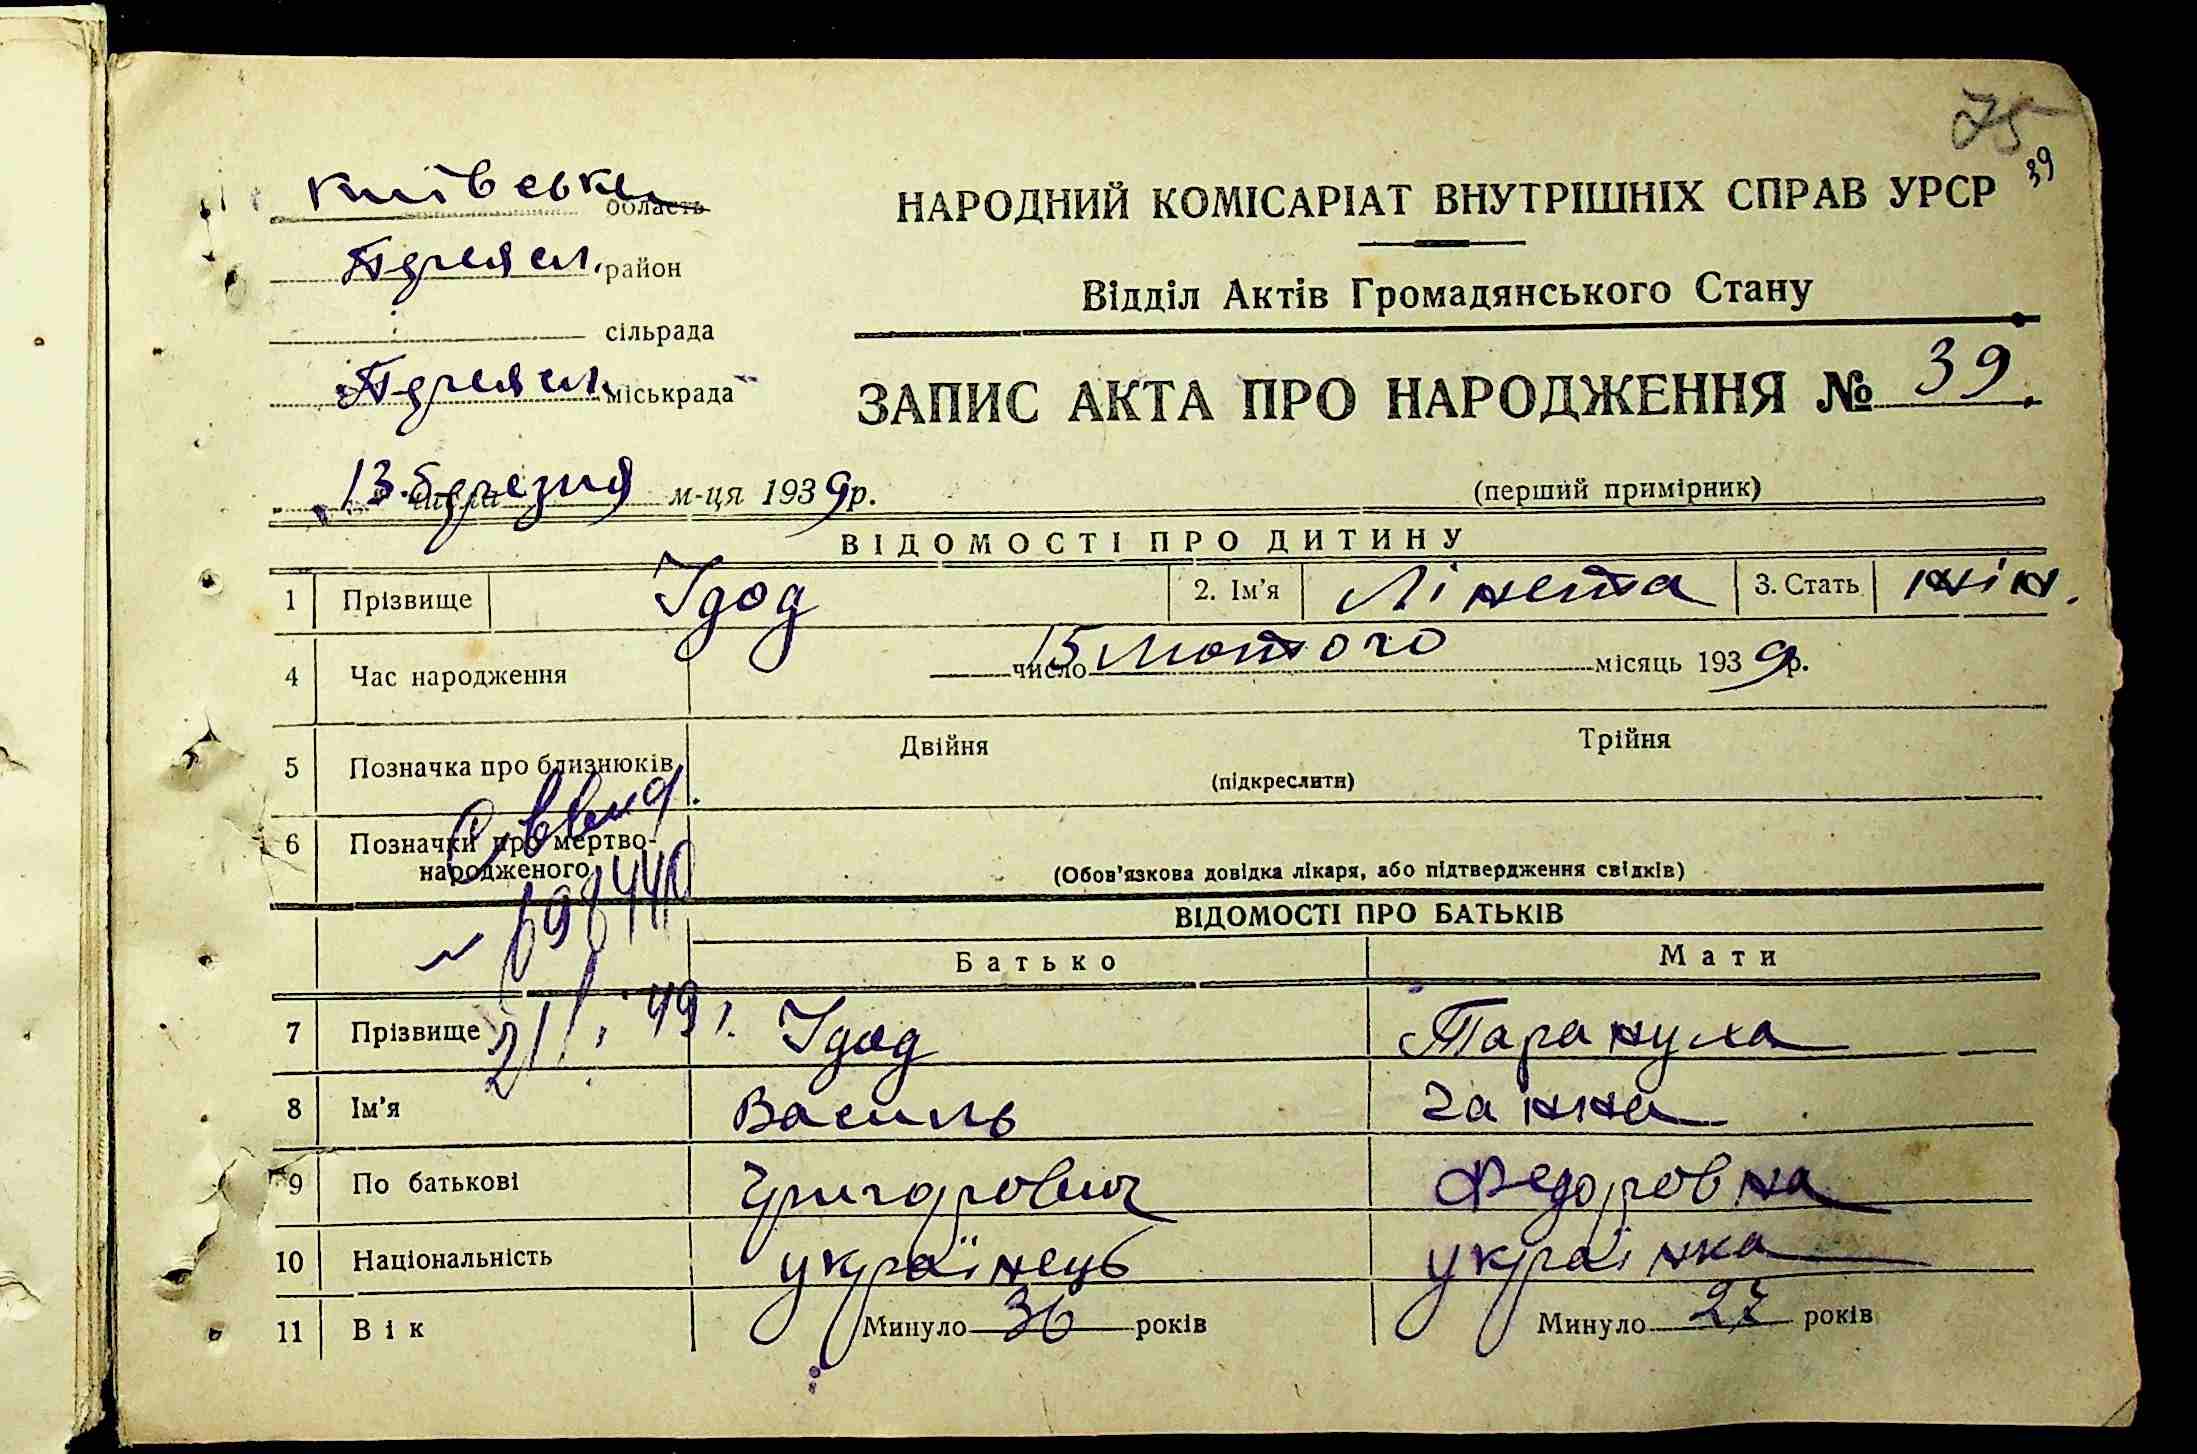 75
39
Київська область
район
сільрада
міськрада
13 березня числа м-ця 1939 р.
НАРОДНИЙ КОМІСАРІАТ ВНУТРІШНІХ СПРАВ УРСР
Відділ Актів Громадянського Стану
ЗАПИС АКТА ПРО НАРОДЖЕННЯ № 39.
(перший примірник)
ВІДОМОСТІ ПРО ДИТИНУ
1 Прізвище Ідод 2. Ім'я Лінета 3. Стать жін.
4 Час народження 15 число лютого місяць 1939 р.
5 Позначка про близнюків Двійня Трійня
(підкреслити)
6 Позначки про мертво-
народженого (Обов'язкова довідка лікаря, або підтвердження свідків)
ВІДОМОСТІ ПРО БАТЬКІВ
Батько Мати
7 Прізвище Ідод
8 Ім'я Василь Ганна
9 По батькові Григорович Федоровна
10 Національність українець українка
11 Вік Минуло 36 років Минуло 27 років